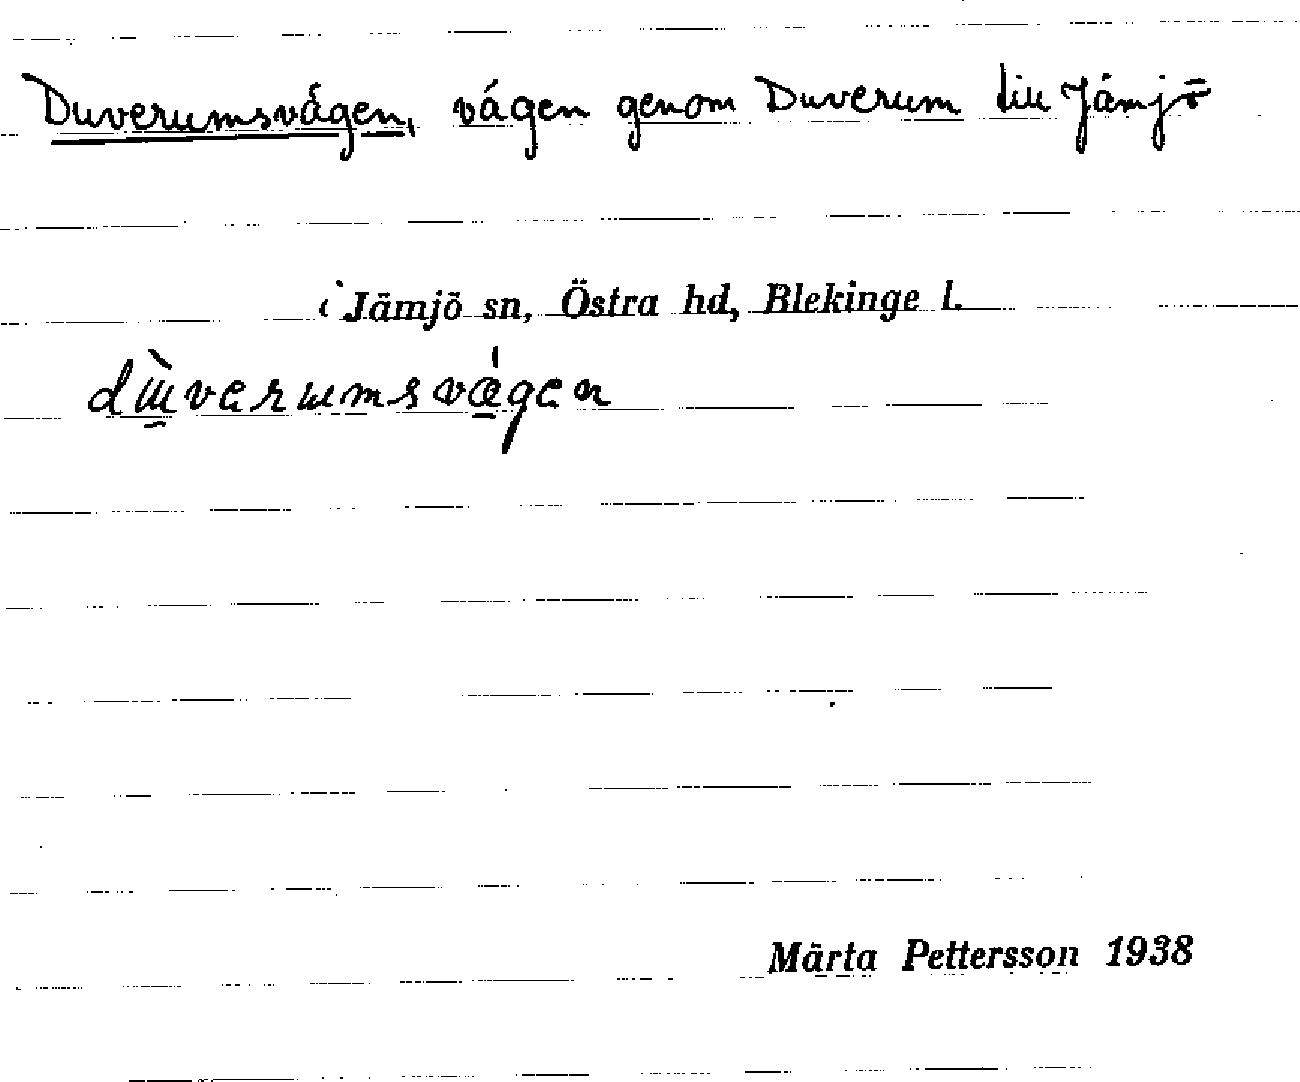 Duverumsvägen, vägen genom Duverum till Jämjö
i Jämjö sn, Östra hd, Blekinge l.
dùverumsvǽgen
Märta Pettersson 1938